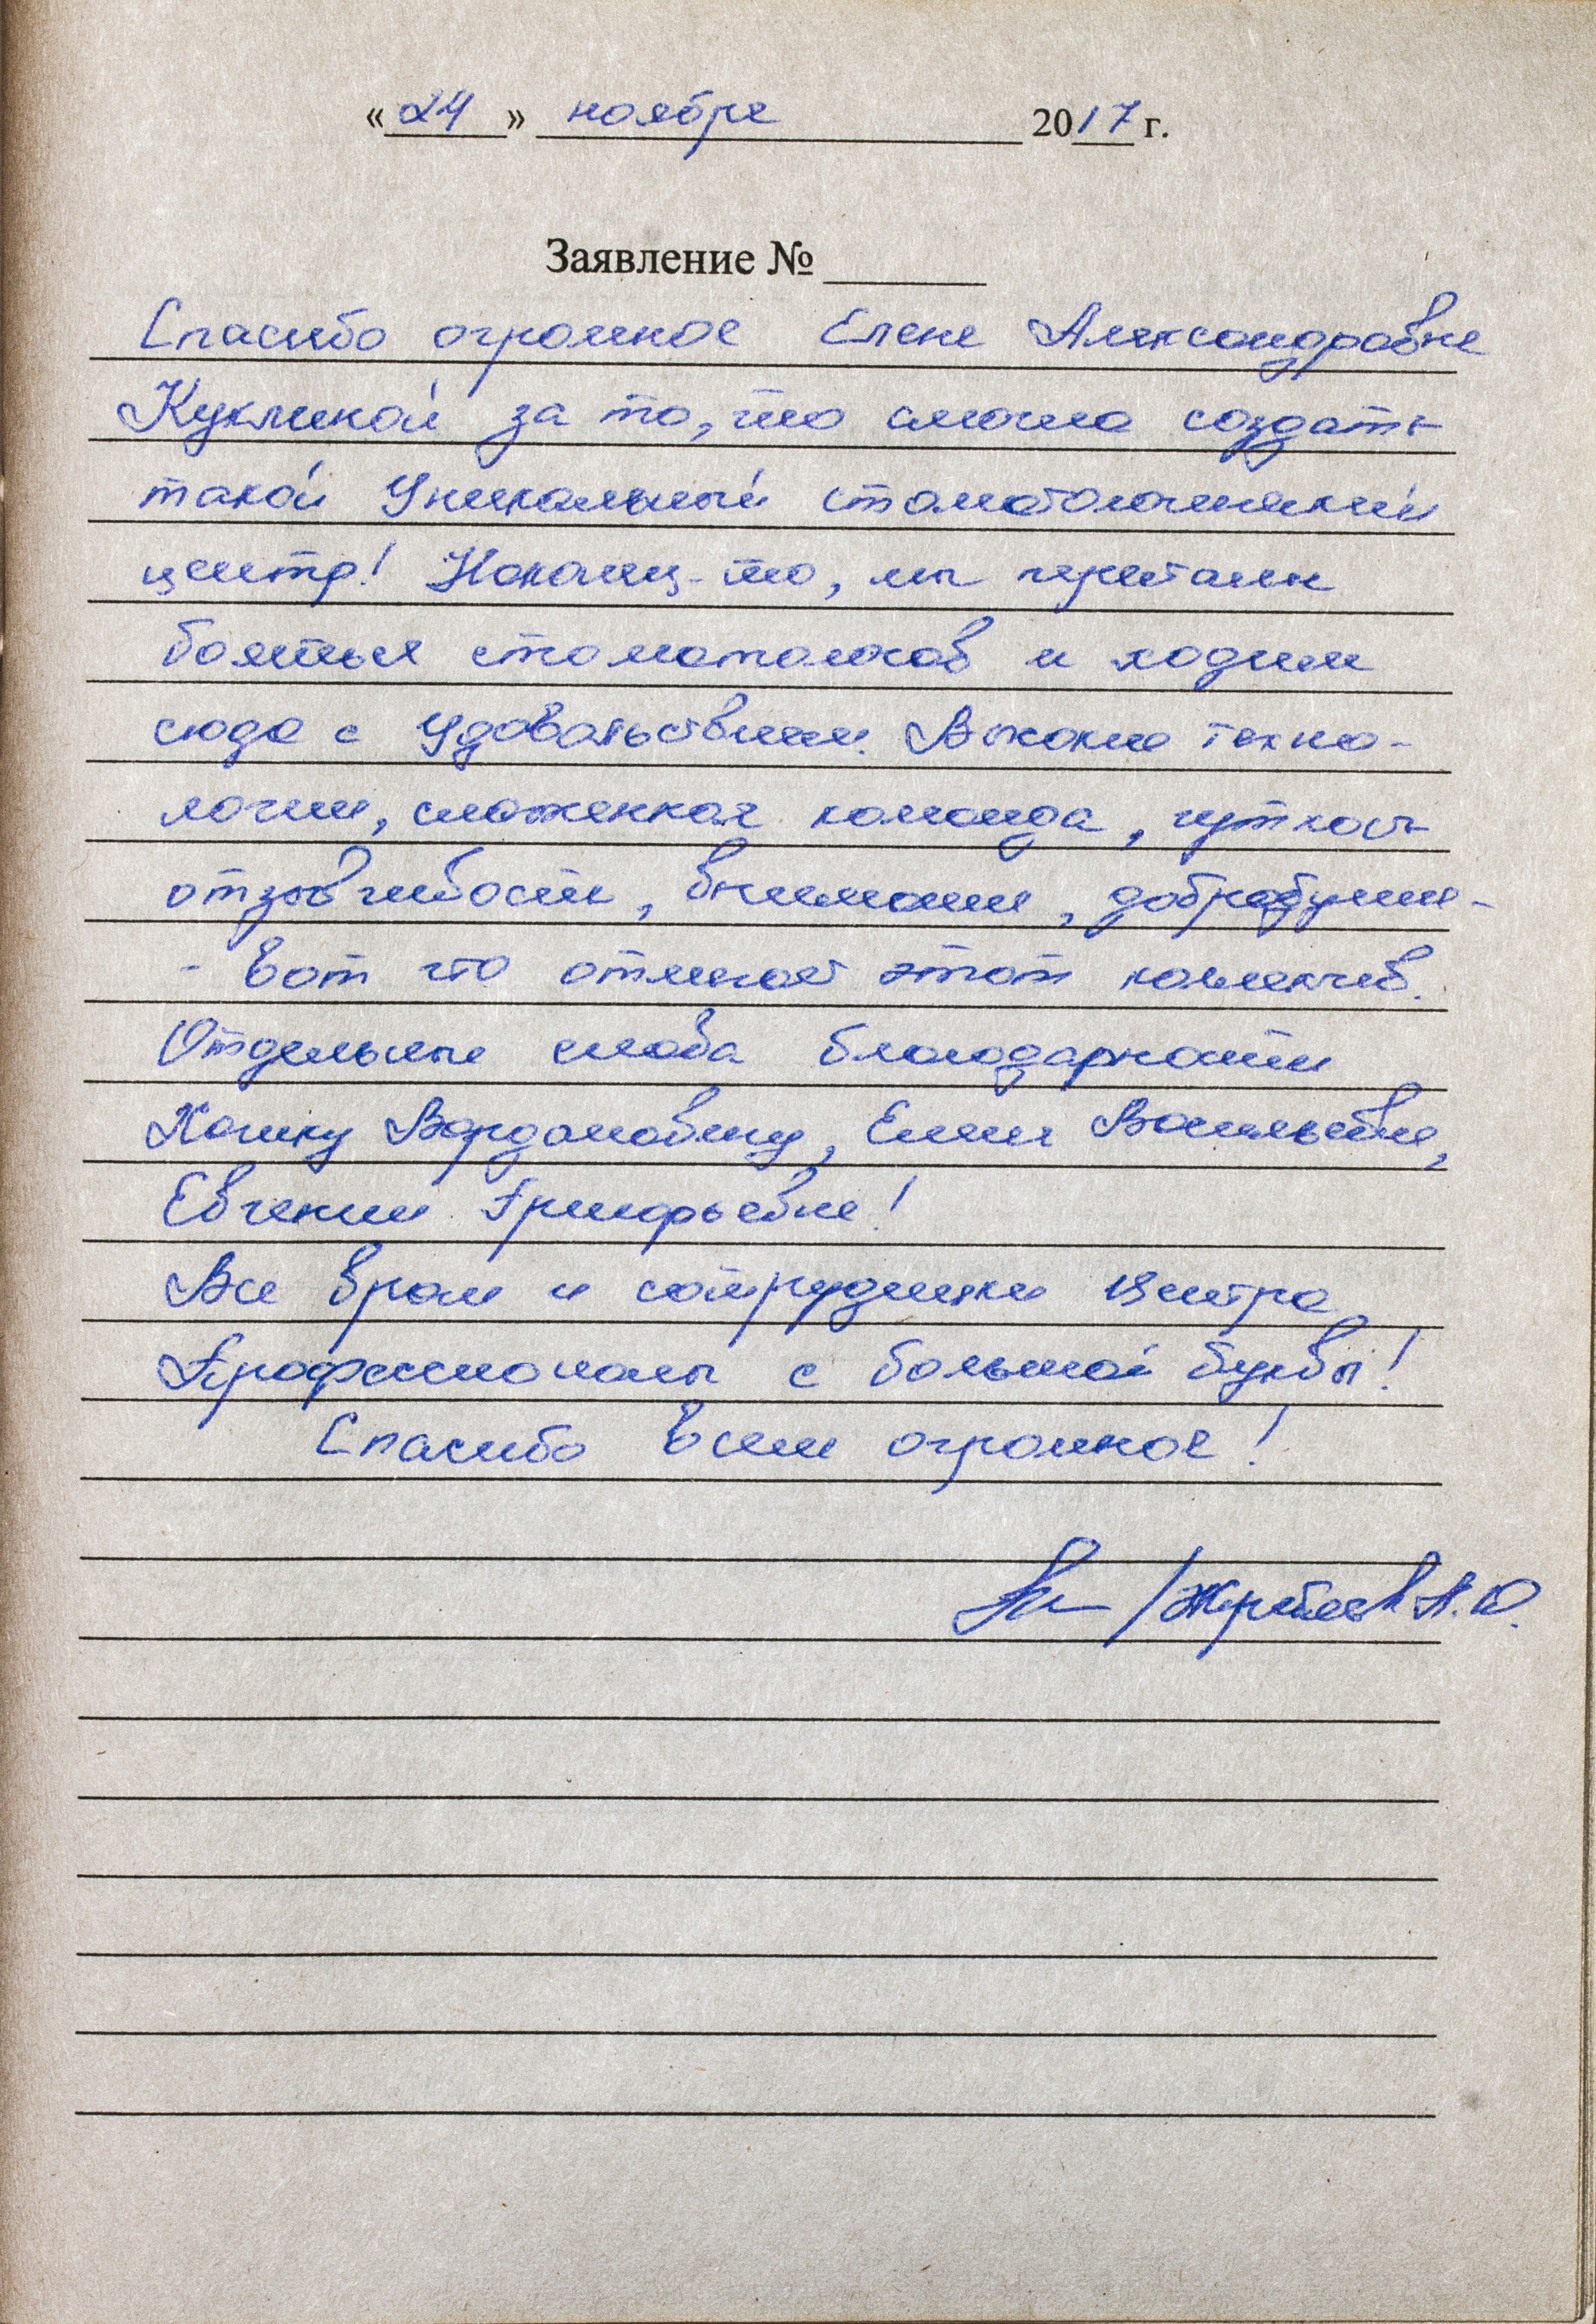 «24» ноября 2017 г.
Заявление №
Спасибо огромное Елене Александровне
Куклиной за то, что смогла создать
такой Уникальный стоматологический
центр! Наконец-то, мы перестали
бояться стоматологов и ходим
сюда с Удовольствием. Высокие техно-
логии, слаженная команда, чуткость
отзывчивость, внимание, добродушие -
- вот что отличает этот коллектив.
Отдельные слова благодарности
Вардановичу, Елене Васильевне,
Евгении Григорьевне!
Все врачи и сотрудники Центра
Профессионалы с большой буквы!
Спасибо Всем огромное!
А.Ю.